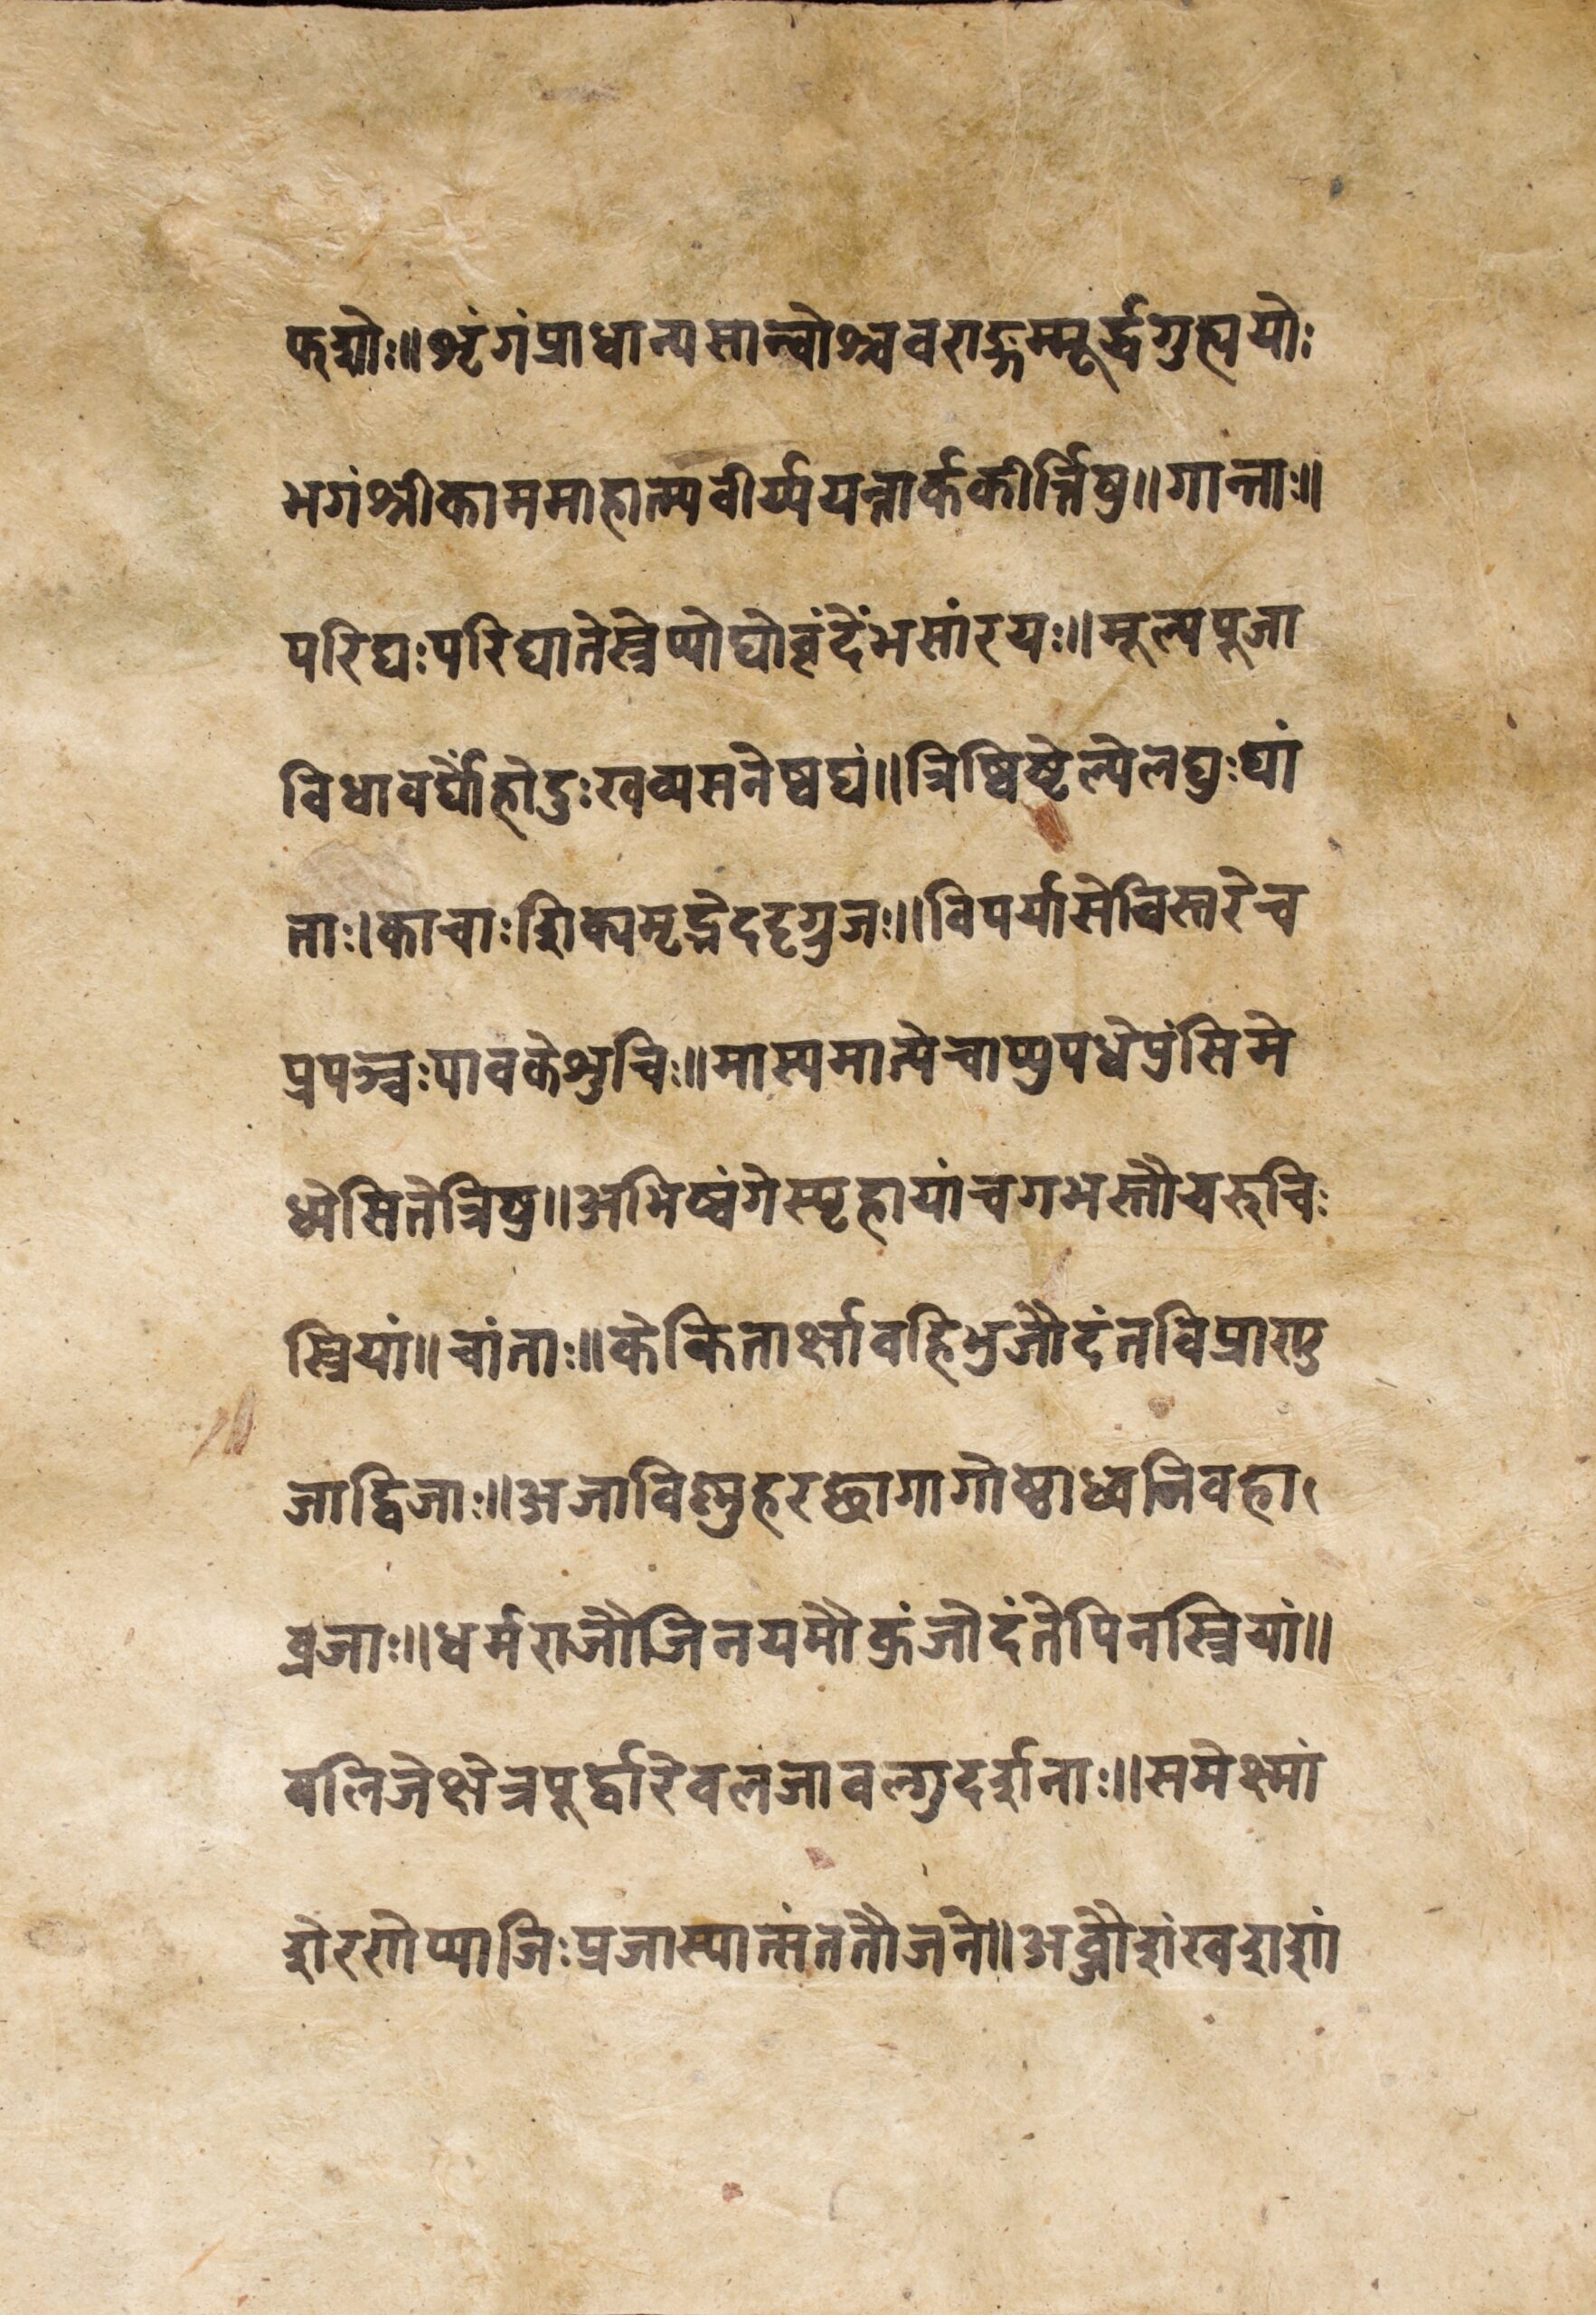 फद्योः॥शृंगंप्राधान्यसान्वोश्चवराङ्गम्मूर्द्धगुह्ययोः
भगंश्रीकाममाहात्म्यवीर्य्ययत्नार्ककीर्त्तिषु॥गान्ताः॥
परिघःपरिघातेस्त्रेप्योघोवृंदेंभसांरयः॥मूल्यपूजा
विधावर्घोंहोदुःखव्यसनेष्वघं॥त्रिष्विष्टेल्पेलघुःघां
ताः।काचाःशिक्यमृद्भेददृग्रुजः॥विपर्यासेविस्तरेच
प्रपञ्चःपावकेशुचिः॥मास्यमात्येचाप्युपधेपुंसिमे
ध्येसितेत्रिषु॥अभिष्वंगेस्पृहायांचगभस्तौचरुचिः
स्त्रियां॥चांताः॥केकितार्क्षावहिभुजौदंतविप्राण्ड
जाद्विजाः॥अजाविष्णुहरछागागोष्ठाध्वनिवहा
व्रजाः॥धर्मराजौजिनयमौकुंजोदंतेपिनस्त्रियां॥
वलिजेक्षेत्रपूर्द्वारेवलजावल्गुदर्शनाः॥समेक्ष्मां
शेरणेप्याजिःप्रजास्यात्संततौजने॥अब्जौशंखशशां